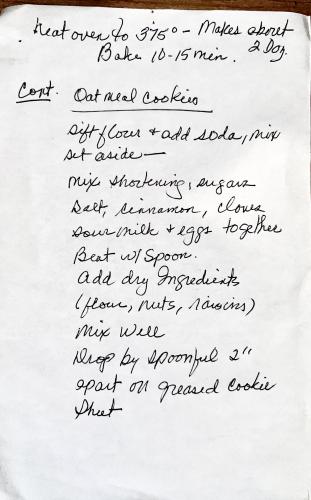 Heat oven to 375° - Makes about
2 Doz.
Bake 10-15 min.
Cont. Oatmeal Cookies
Sift flour + add soda, mix
set aside —
Mix shortening, sugars
Salt, cinnamon, cloves
sour milk + eggs together
Beat w/ Spoon.
Add dry Ingredients
(flour, nuts, raisins)
Mix Well
Drop by spoonful 2"
apart on greased cookie
Sheet